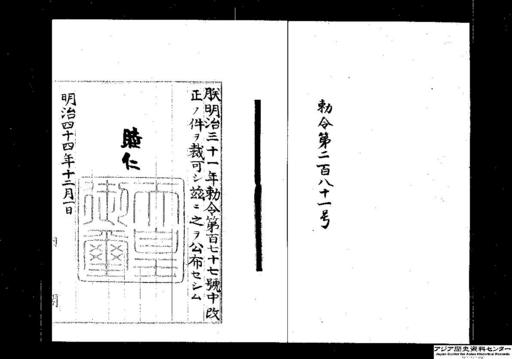 勅令第二百八十一号
朕明治三十一年勅令第百七十七號中改
正ノ件ヲ裁可シ茲ニ之ヲ公布セシム
睦仁
天皇
御璽
明治四十四年十二月一日
内閣
アジア歴史資料センター
Japan Center for Asian Historical Records